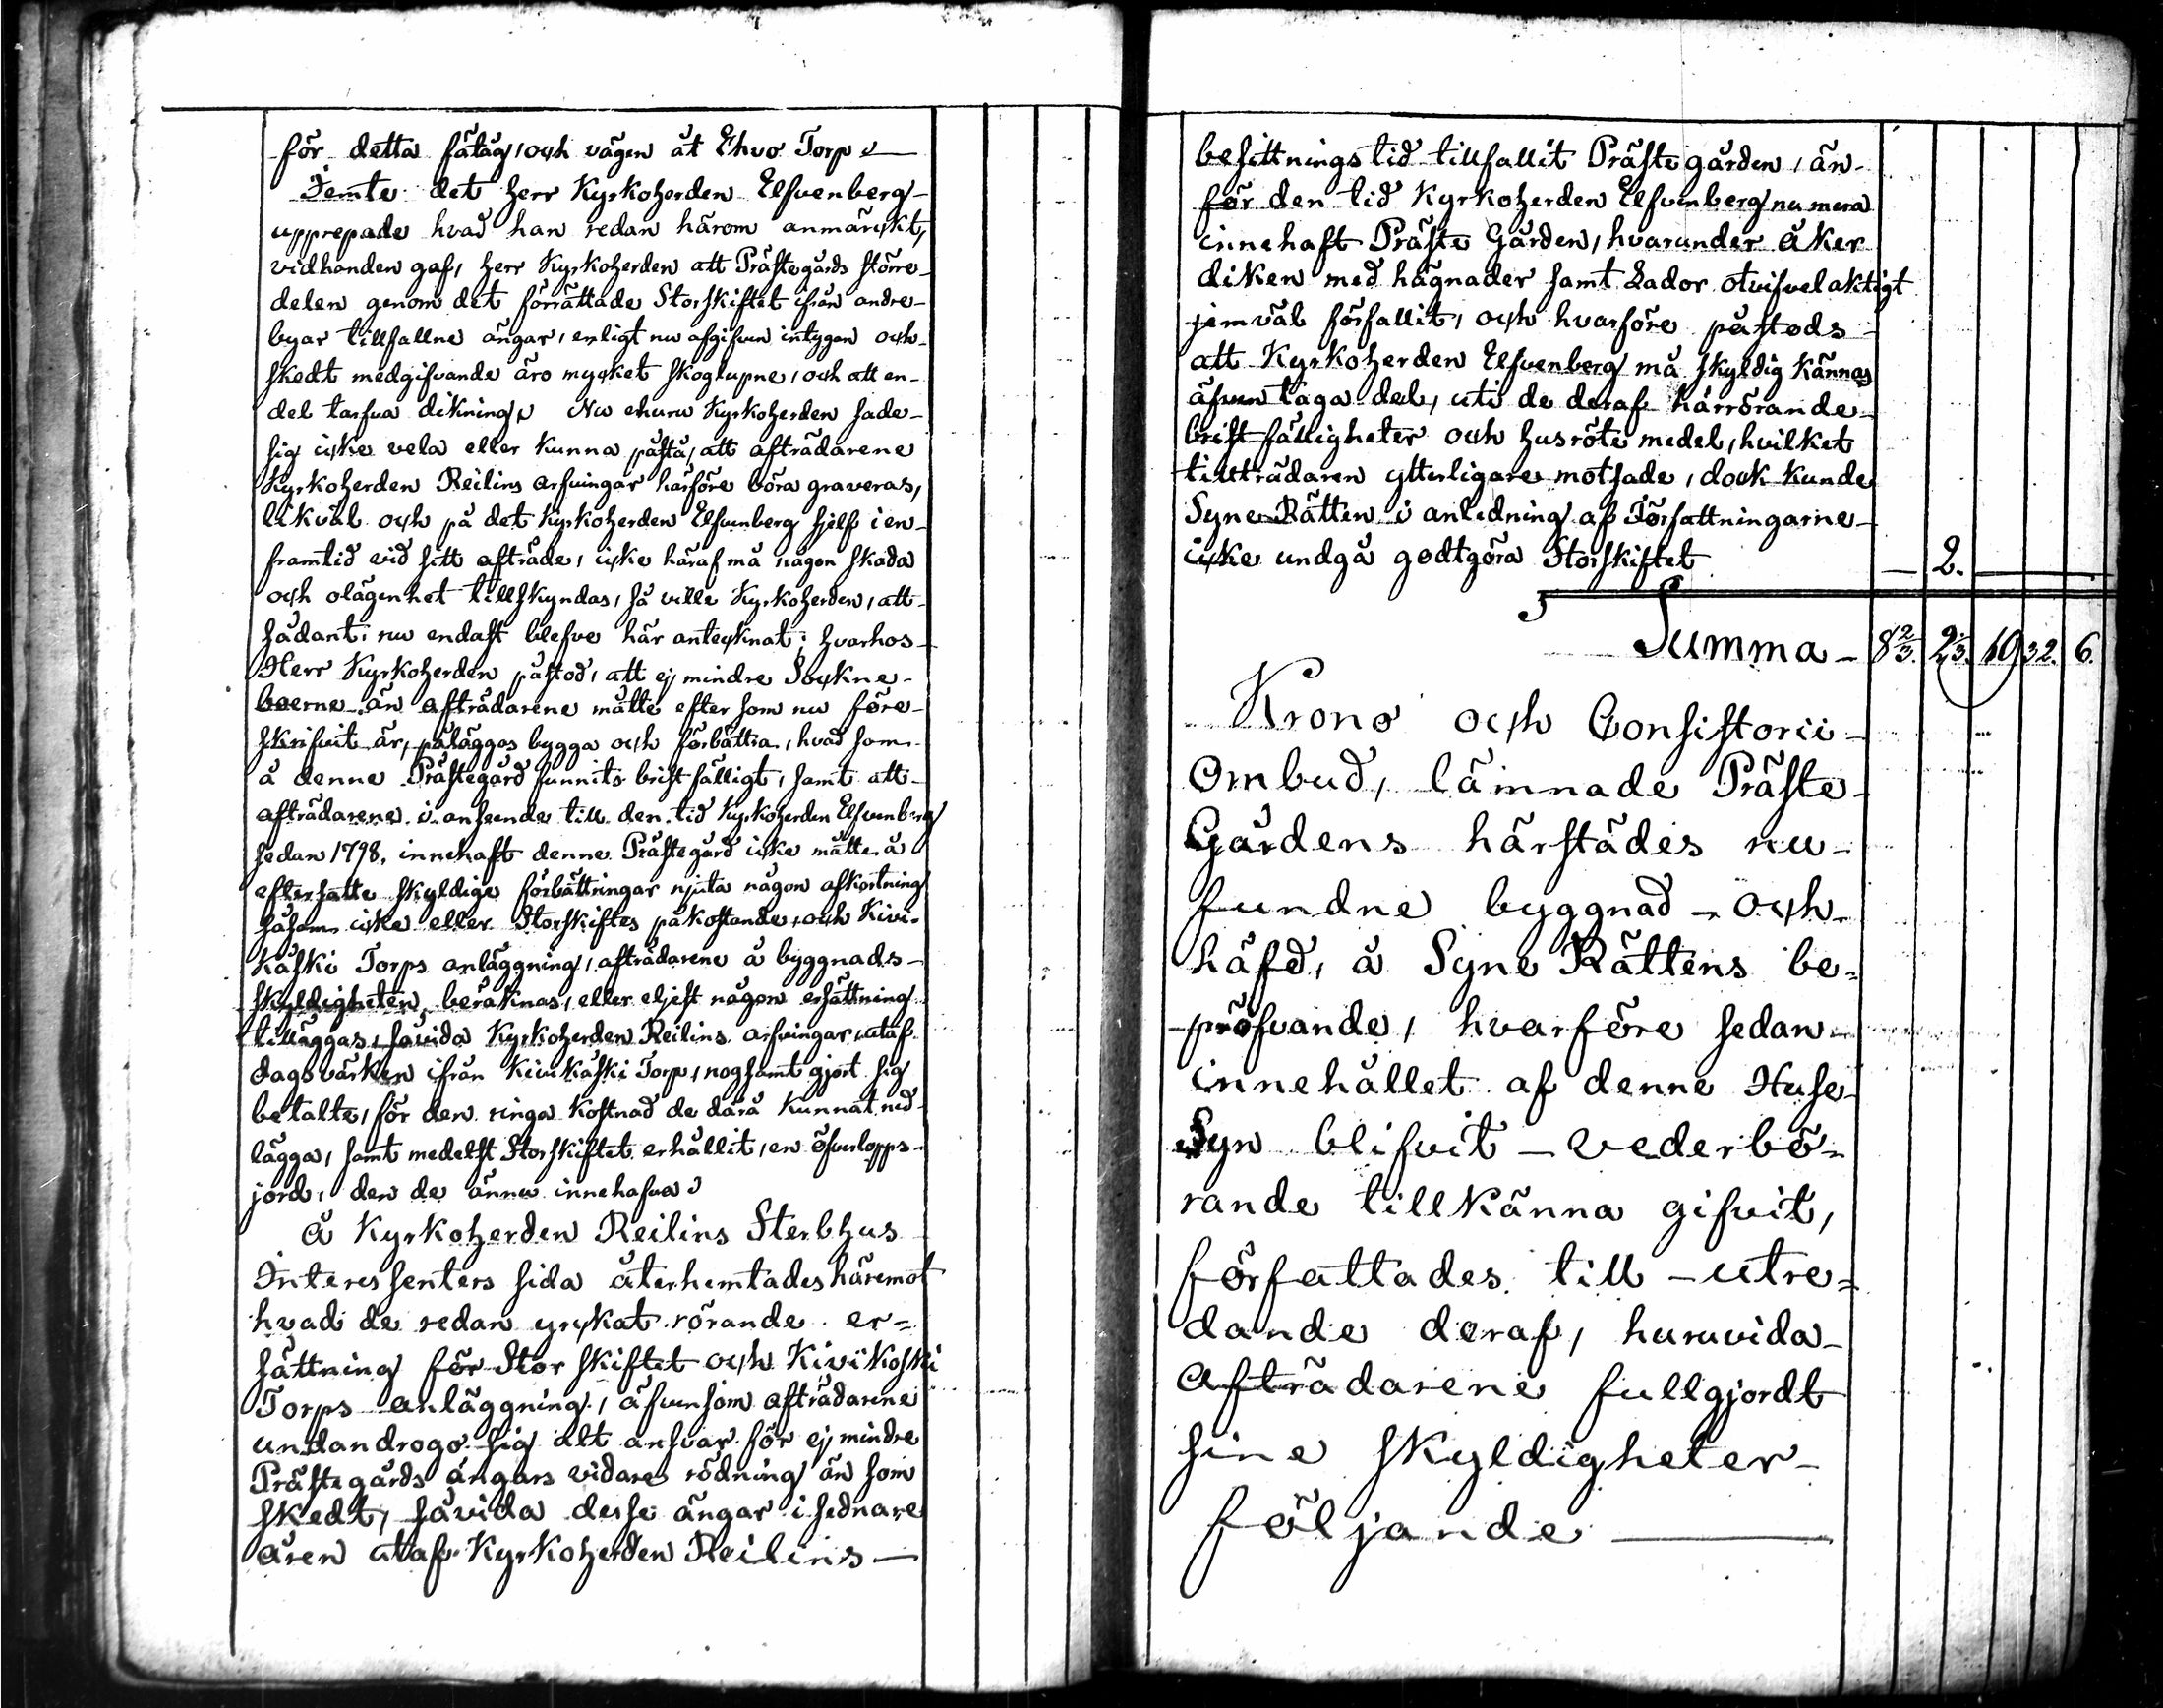 för detta fätåg, och vägen åt Ehvo Torp
Jemte det Herr Kyrkoherden Elfvenberg
upprepade hvad han redan härom anmärckt,
vidhanden gaf, herr Kyrkoherden att Prästegårds större
delen genom det förrättade Storskiftet ifrån andre
byar tillfallne ängar, enligt nu afgifven intygan och
skedt medgifvande äro mycket skoglupne, och att en
del tarfva dikning, Nu ehuru Kyrkoherden sade
sig icke vela eller kunna påstå, att afträdarene
Kyrkoherden Reilins arfvingar härföre böra graveras,
likväl och på det Kyrkoherden Elfvenberg sjelf i en
framtid vid sitt afträde, icke häraf må någon skada
och olägenhet tillskyndas, så ville Kyrkoherden, att
sådant nu endast blefve här antecknat; hvarhos
Herr Kyrkoherden påstod, att ej mindre Sockne-
boerne än afträdarene måtte efter som nu före-
skrifvit är, påläggas bygga och förbättra, hvad som
å denne Prästegård funnits bristfälligt, samt att
afträdarene i anseende till den tid Kyrkoherden Elfvenberg
sedan 1798, innehaft denne Prästegård icke måtte å
eftersatte skyldige förbättringar njuta någon afkortning
såsom icke eller Storskiftes påkostande, och Kivi-
käski Torps anläggning, afträdarene å byggnads-
skyldigheten beräknas, eller eljest någon ersättning
tilläggas, såvida Kyrkoherden Reilins arfvingar utaf
dagsvärken ifrån Kivikäski Torp, nogsamt gjort sig
betalte, för den ringa kostnad de därå kunnat ned-
lägga, samt medelst Storskiftet erhållit, en öfverlopps-
jord, den de ännu innehafva
Å Kyrkoherden Reilins Sterbhus
Interessenters sida återhemtades häremot
hvad de redan yrckat rörande er=
sättning för Storskiftet och Kivikoski
Torps anläggning, äfvensom afträdarene
undandrogo sig alt ansvar för ej mindre
Prästegårds ängars vidare rödning än som
skedt, såvida desse ängar i sednare
åren utaf Kyrkoherden Reilins
besittningstid tillfallit Prästegården, än
för den tid Kyrkoherden Elfvenberg numera
innehaft Präste Gården, hvarunder åker
diken med hägnader samt Lador otvifvelaktigt
jemväl förfallit, och hvarföre påstods
att Kyrkoherden Elfvenberg må skyldig kännas
äfven taga del, uti de deraf härrörande
bristfälligheter och husröte medel, hvilket
tillträdaren ytterligare motsade, dock kunde
Syne Rätten i anledning af Författningarne
icke undgå godtgöra Storskiftet — 2. —
Summa — 8 2/3. 2 1/3. 10 32. 6.
Krono och Consistorii
Ombud, lämnade Präste-
Gårdens härstädes nu-
fundne byggnad och
häfd, å Syne Rättens be=
pröfvande, hvarföre sedan
innehållet af denne Huse
Syn blifvit vederbö=
rande tillkänna gifvit,
författades till utre=
dande deraf, huruvida
afträdarene fullgjordt
sine skyldigheter
följande